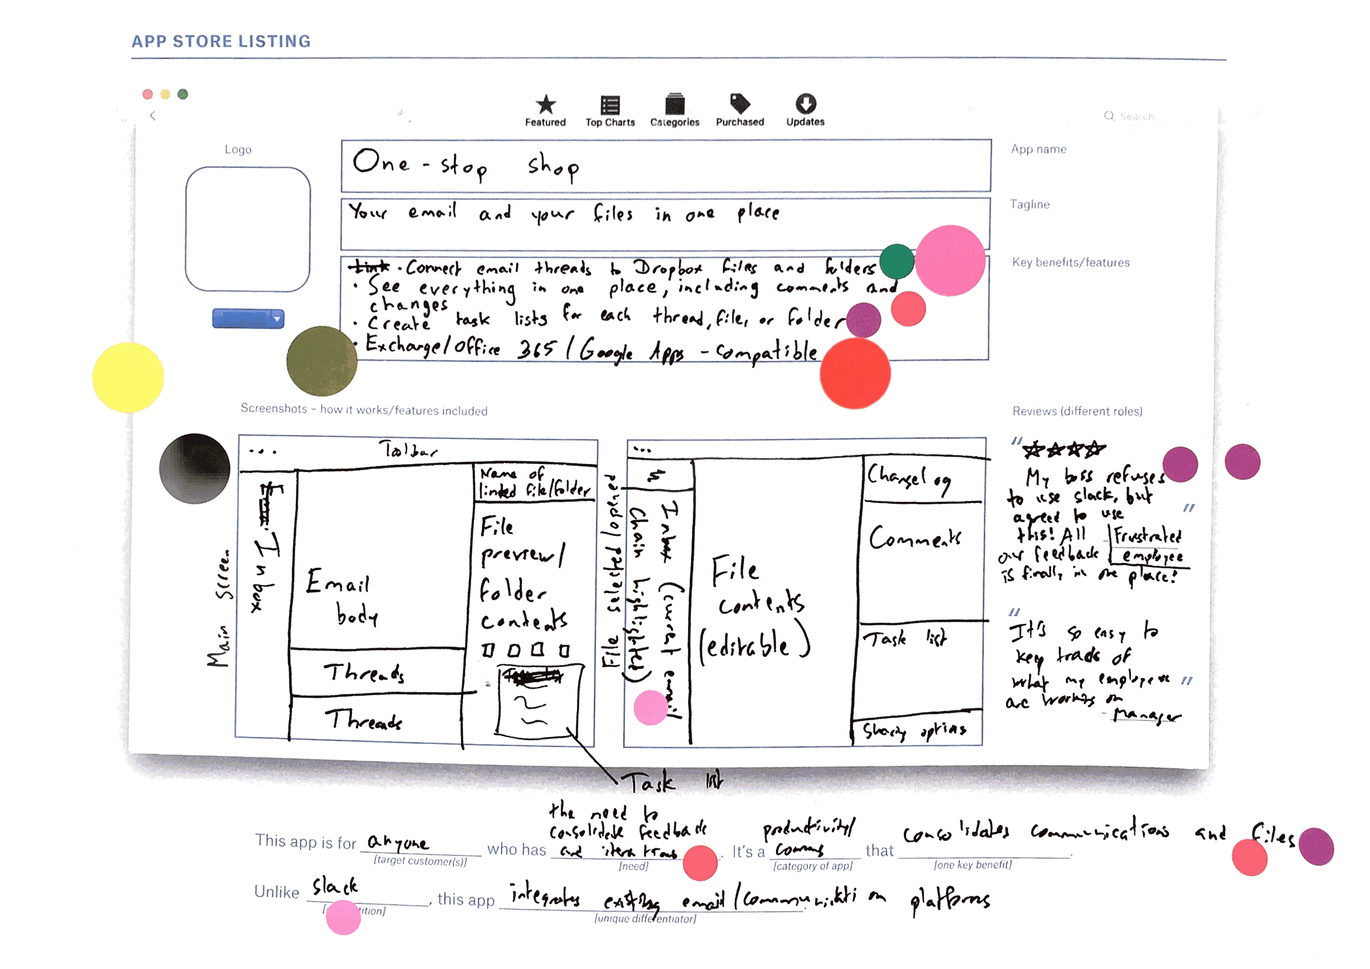 APP STORE LISTING
Featured Top Charts Categories Purchased Updates
Search
Logo
One-stop shop
App name
Your email and your files in one place
Tagline
Link · Connect email threads to Dropbox files and folders
Key benefits/features
· See everything in one place, including comments and
changes
· Create task lists for each thread, file, or folder
· Exchange/Office 365 / Google Apps - compatible
Screenshots – how it works/features included
Main Screen
...
Toolbar
Inbox
Email
body
Threads
Threads
Name of
linked file/folder
File
preview/
folder
contents
Task list
File selected/opened
...
Inbox (current email
chain highlighted)
File
contents
(editable)
Changelog
Comments
Task list
Sharing options
Reviews (different roles)
"
My boss refuses
to use slack, but
agreed to use "
this! All
our feedback
is finally in one place!
Frustrated
employee
"
It's so easy to
key track of
what my employees "
are working on
- Manager
This app is for anyone who has the need to consolidate feedback and iterations. It's a productivity/comms that consolidates communications and files.
[target customer(s)] [need] [category of app] [one key benefit]
Unlike slack, this app integrates existing email/communication platforms
[unique differentiator]